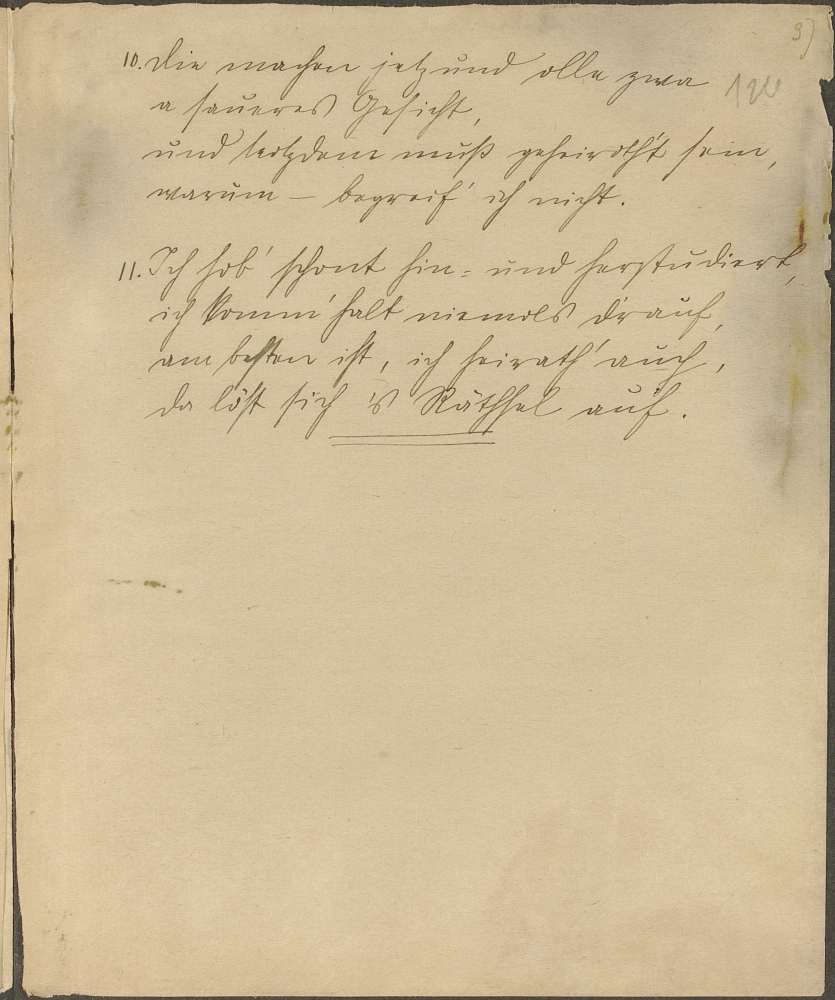 3)
10. Die machen jetzund olle zwa
a saueres Gesicht,
und trotzdem muß geheiroth't sein,
warum – begreif' ich nicht.
11. Ich hob' schont hin= und herstudiert,
ich komm' halt niemols d'rauf,
am besten ist, ich heirath' auch,
da löst sich 's Räthsel auf.